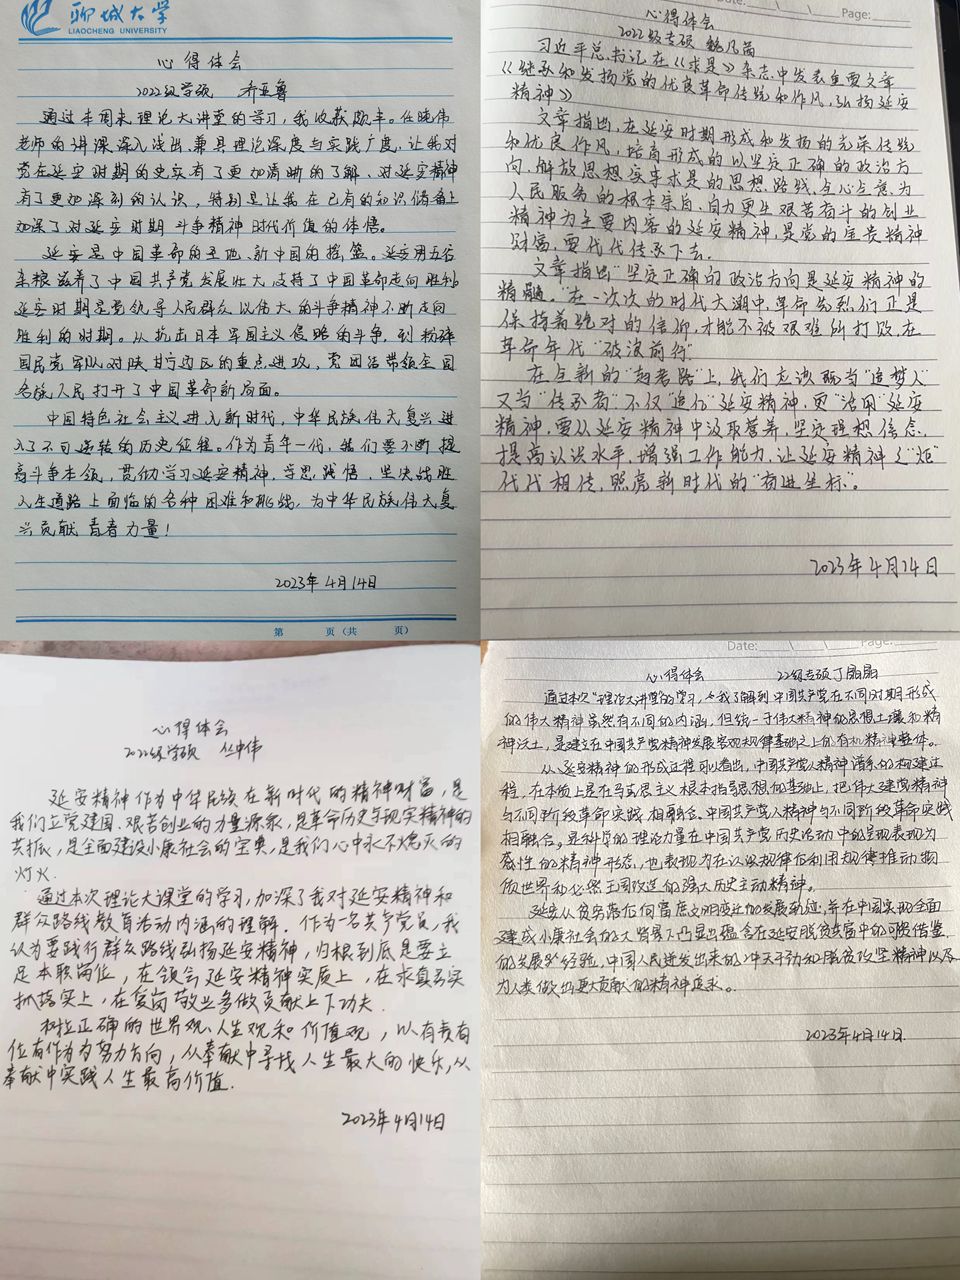 聊城大学
LIAOCHENG UNIVERSITY
心得体会
2022级学硕 乔亚鲁
通过本周末理论大讲堂的学习，我收获颇丰。任晓伟
老师的讲课深入浅出，兼具理论深度与实践广度，让我对
党在延安时期的史实有了更加清晰的了解、对延安精神
有了更加深刻的认识，特别是让我在已有的知识储备上
加深了对延安时期斗争精神时代价值的体悟。
延安是中国革命的圣地、新中国的摇篮。延安用五谷
杂粮滋养了中国共产党发展壮大，支持了中国革命走向胜利。
延安时期是党领导人民群众以伟大的斗争精神不断走向
胜利的时期。从抗击日本军国主义侵略的斗争，到粉碎
国民党军队对陕甘宁边区的重点进攻，党团结带领全国
各族人民打开了中国革命新局面。
中国特色社会主义进入新时代，中华民族伟大复兴进
入了不可逆转的历史征程。作为青年一代，我们要不断提
高斗争本领，贯彻学习延安精神，学思践悟，坚决战胜
人生道路上面临的各种困难和挑战，为中华民族伟大复
兴贡献青春力量！
2023年4月14日
第 页（共 页）
Date:
Page:
心得体会
2022级专硕 魏凡茵
习近平总书记在《求是》杂志中发表重要文章
《继承和发扬党的优良革命传统和作风，弘扬延安
精神》
文章指出，在延安时期形成和发扬的光荣传统
和优良作风，培育形成的以坚定正确的政治方
向、解放思想实事求是的思想路线、全心全意为
人民服务的根本宗旨、自力更生艰苦奋斗的创业
精神为主要内容的延安精神，是党的宝贵精神
财富，要代代传承下去。
文章指出“坚定正确的政治方向是延安精神的
精髓。”在一次次的时代大潮中，革命先烈们正是
保持着绝对的信仰，才能不被艰难所打败，在
革命年代“破浪前行”。
在全新的“赶考路”上，我们应该既当“追梦人”
又当“传承者”，不仅“追忆”延安精神，更“活用”延安
精神，要从延安精神中汲取营养，坚定理想信念，
提高认识水平，增强工作能力，让延安精神之“炬”
代代相传，照亮新时代的“奋进坐标”。
2023年4月14日
心得体会
2022级学硕 丛中伟
延安精神作为中华民族在新时代的精神财富，是
我们立党建国、艰苦创业的力量源泉，是革命历史与现实精神的
共振，是全面建设小康社会的宝典，是我们心中永不熄灭的
灯火．
通过本次理论大课堂的学习，加深了我对延安精神和
群众路线教育活动内涵的理解．作为一名共产党员，我
认为要践行群众路线弘扬延安精神，归根到底是要立
足本职岗位，在领会延安精神实质上，在求真务实
抓落实上，在爱岗敬业多做贡献上下功夫．
树立正确的世界观、人生观和价值观，以有责有
位有作为为努力方向，从奉献中寻找人生最大的快乐，从
奉献中实践人生最高价值．
2023年4月14日
Date:
Page:
心得体会 22级专硕丁晶晶
通过本次“理论大讲堂的学习，令我了解到中国共产党在不同时期形成
的伟大精神虽然有不同的内涵，但统一于伟大精神的思想土壤和精
神沃土，是建立在中国共产党精神发展客观规律基础之上的有机精神整体。
从延安精神的形成过程可以看出，中国共产党人精神谱系的构建过
程，在本质上是在马克思主义根本指导思想的基础上，把伟大建党精神
与不同阶段革命实践相融合。中国共产党人精神与不同阶段革命实践
相融合，是科学的理论力量在中国共产党历史活动中的呈现表现为
感性的精神形态，也表现为在认识规律后利用规律推动物
质世界和必然王国改造的强大历史主动精神。
延安从贫穷落后向富庶文明变迁的发展轨迹，并在中国实现全面
建成小康社会的大背景下凸显出蕴含在延安脱贫致富中的可资借鉴
的发展经验，中国人民迸发出来的冲天干劲和脱贫攻坚精神以及
为人类做出更大贡献的精神追求。
2023年4月14日